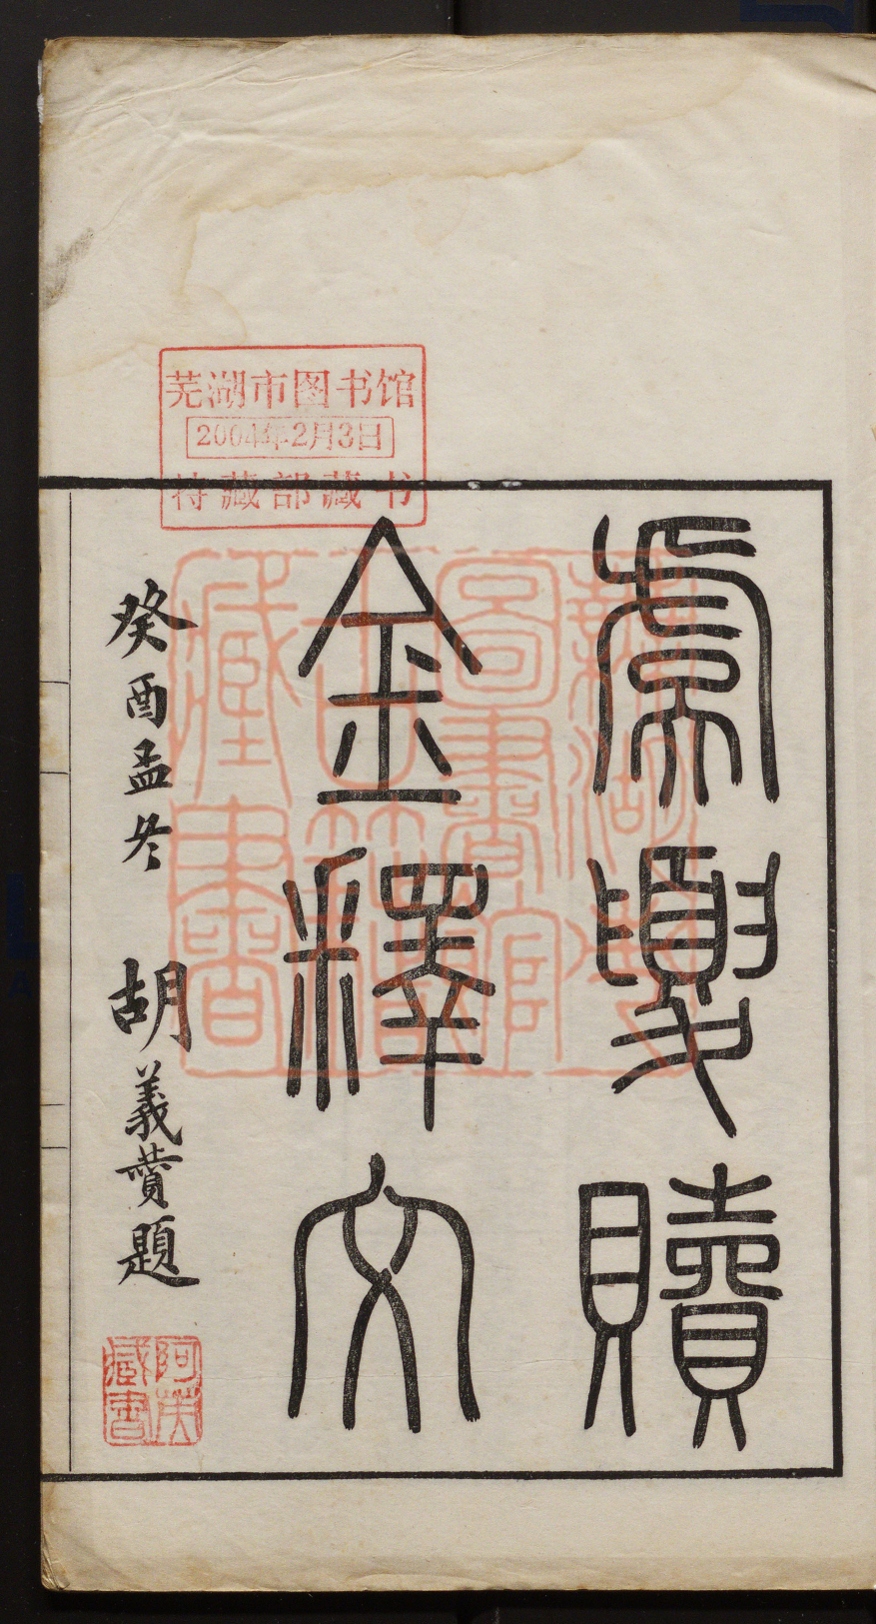 芜湖市图书馆
2004年2月3日
特藏部藏书
虞夏贖
金釋文
癸酉孟冬 胡義贊題
蕪湖市
圖書館
古籍
藏書
阿英
藏書